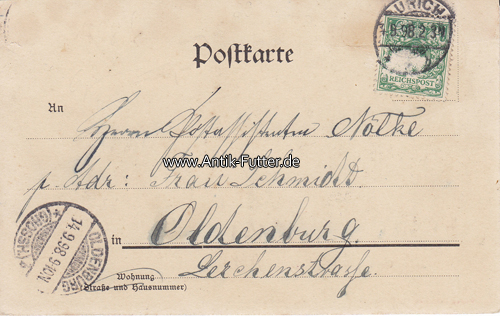 AURICH
.9.98.2-3N
REICHSPOST
Postkarte
An
Herrn Postassistenten Nölke
www.Antik-Futter.de
p. Adr: Frau Schmidt
in Oldenburg.
Lerchenstrasse.
Wohnung
(Straße und Hausnummer)
OLDENBURG
14.9.98.9-10V.
(GROSSH.)